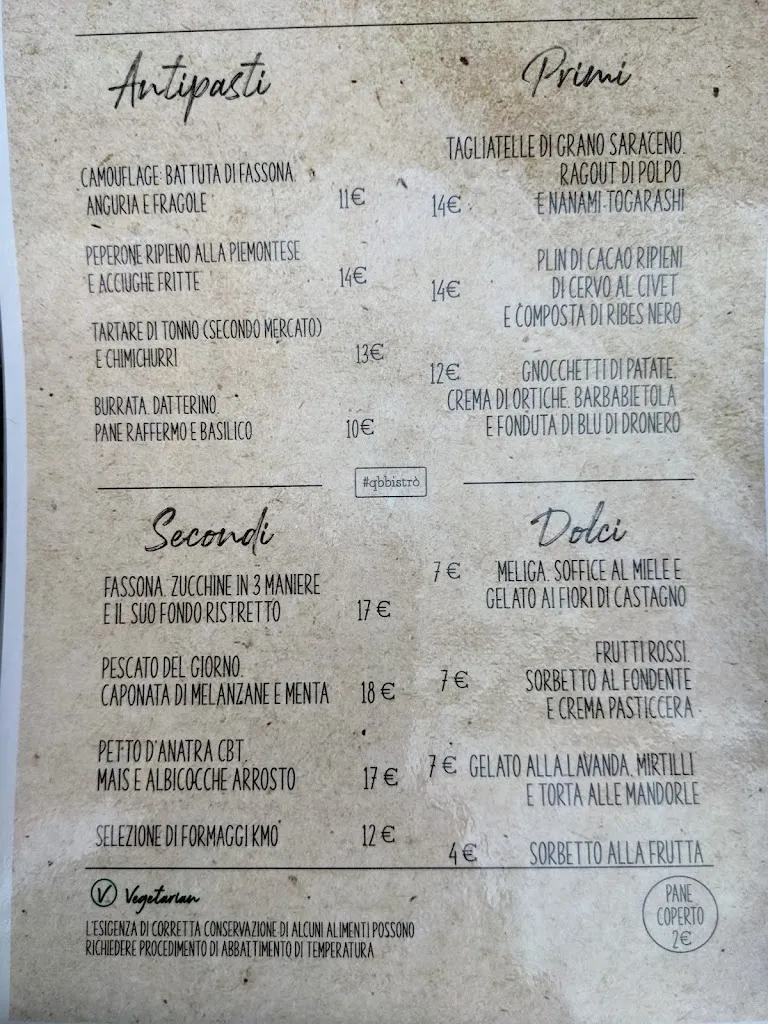 Antipasti
CAMOUFLAGE: BATTUTA DI FASSONA,
ANGURIA E FRAGOLE 11€
PEPERONE RIPIENO ALLA PIEMONTESE
E ACCIUGHE FRITTE 14€
TARTARE DI TONNO (SECONDO MERCATO)
E CHIMICHURRI 13€
BURRATA, DATTERINO,
PANE RAFFERMO E BASILICO 10€
Primi
TAGLIATELLE DI GRANO SARACENO,
RAGOUT DI POLPO
14€ E NANAMI-TOGARASHI
PLIN DI CACAO RIPIENI
14€ DI CERVO AL CIVET
E COMPOSTA DI RIBES NERO
12€ GNOCCHETTI DI PATATE,
CREMA DI ORTICHE, BARBABIETOLA
E FONDUTA DI BLU DI DRONERO
#qbbistrò
Secondi
FASSONA, ZUCCHINE IN 3 MANIERE
E IL SUO FONDO RISTRETTO 17 €
PESCATO DEL GIORNO,
CAPONATA DI MELANZANE E MENTA 18 €
PETTO D'ANATRA CBT,
MAIS E ALBICOCCHE ARROSTO 17 €
SELEZIONE DI FORMAGGI KM0 12 €
Dolci
7 € MELIGA, SOFFICE AL MIELE E
GELATO AI FIORI DI CASTAGNO
FRUTTI ROSSI,
7 € SORBETTO AL FONDENTE
E CREMA PASTICCERA
7 € GELATO ALLA LAVANDA, MIRTILLI
E TORTA ALLE MANDORLE
4 € SORBETTO ALLA FRUTTA
V Vegetarian
L'ESIGENZA DI CORRETTA CONSERVAZIONE DI ALCUNI ALIMENTI POSSONO
RICHIEDERE PROCEDIMENTO DI ABBATTIMENTO DI TEMPERATURA
PANE
COPERTO
2€